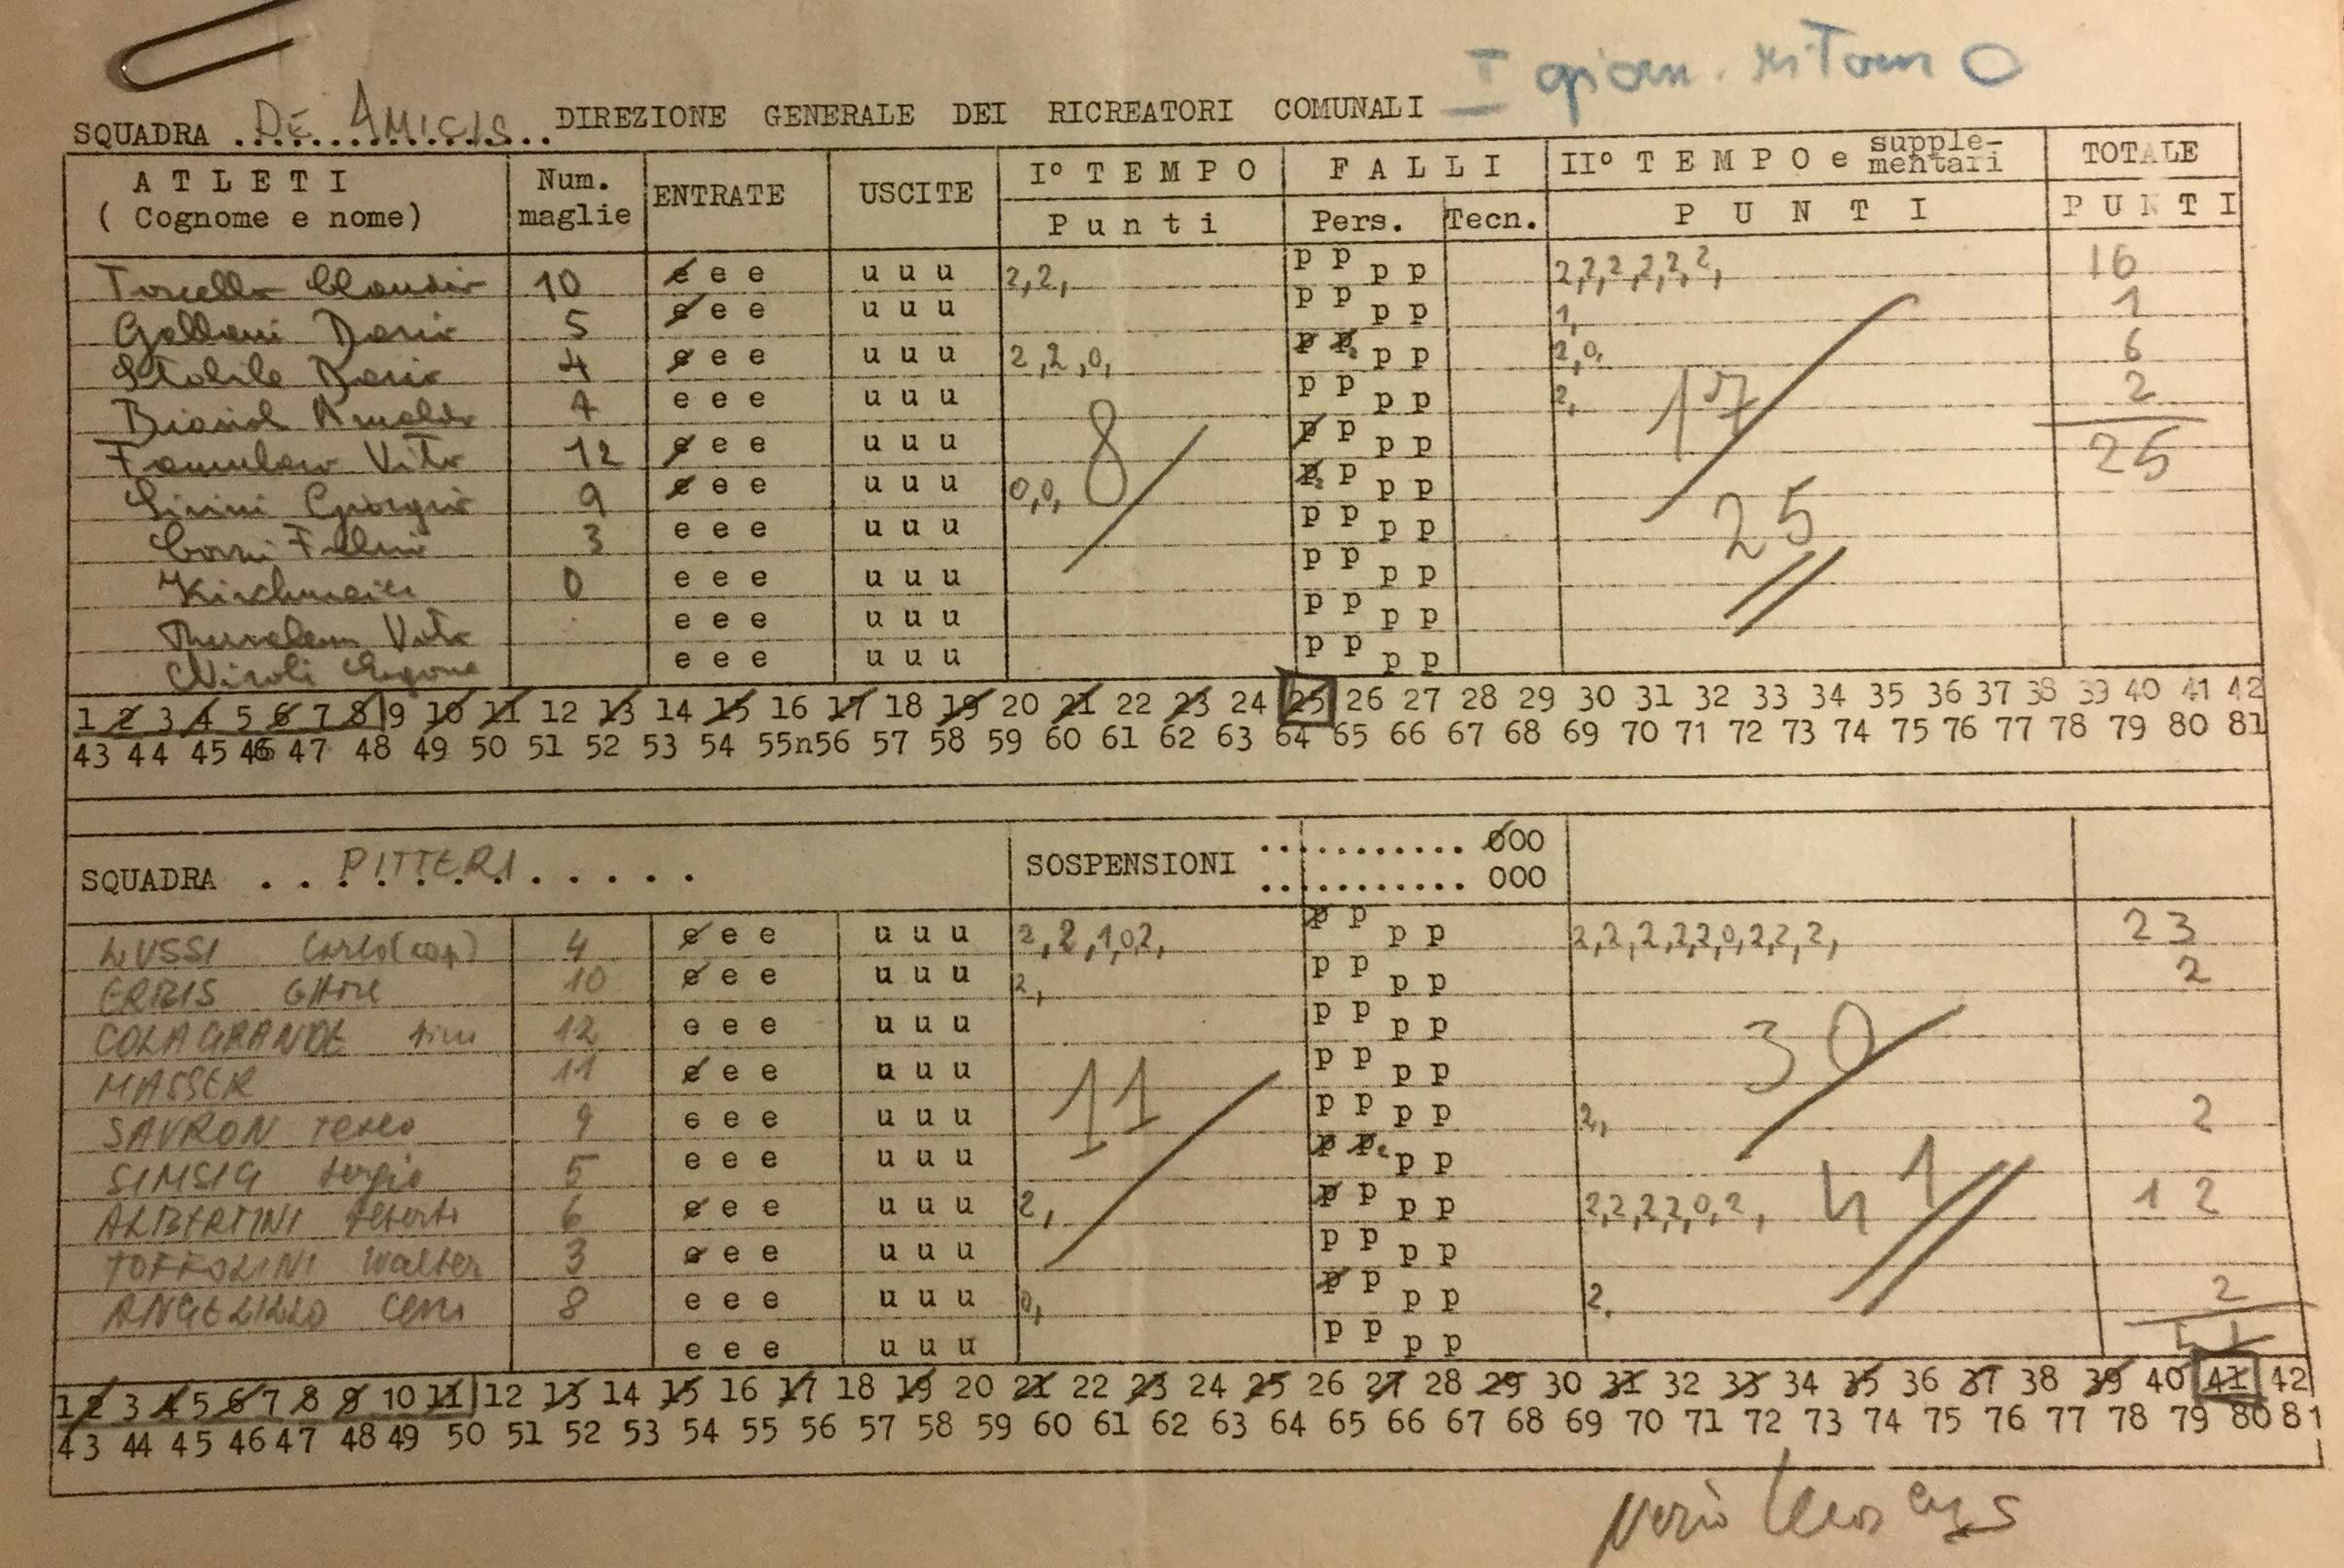 I giorn. ritorno
SQUADRA DE AMICIS DIREZIONE GENERALE DEI RICREATORI COMUNALI
ATLETI (Cognome e nome) Num. maglie ENTRATE USCITE I° TEMPO Punti FALLI Pers. Tecn. II° TEMPO e supplementari PUNTI TOTALE PUNTI
Claudio 10 e e e u u u 2,2, p p p p 2,2,2,2,2,2, 16
Dario 5 e e e u u u p p p p 1, 1
Stabile Dario 4 e e e u u u 2,2,0, p p p p 2,0, 6
Arnaldo 4 e e e u u u p p p p 2, 2
Vito 12 e e e u u u p p p p 25
Giorgio 9 e e e u u u 0,0, p p p p
3 e e e u u u p p p p
Kirchmeier 0 e e e u u u p p p p
Vito e e e u u u p p p p
e e e u u u p p p p
8 17
25
1 2 3 4 5 6 7 8 9 10 11 12 13 14 15 16 17 18 19 20 21 22 23 24 25 26 27 28 29 30 31 32 33 34 35 36 37 38 39 40 41 42
43 44 45 46 47 48 49 50 51 52 53 54 55n56 57 58 59 60 61 62 63 64 65 66 67 68 69 70 71 72 73 74 75 76 77 78 79 80 81
SQUADRA PITTERI SOSPENSIONI ........... 000
........... 000
LUSSI Carlo (cap) 4 e e e u u u 2,2,1,0,2, p p p p 2,2,2,2,2,0,2,2,2, 23
10 e e e u u u 2, p p p p 2
COLAGRANDE 12 e e e u u u p p p p
MASSER 11 e e e u u u p p p p
SAVRON 9 e e e u u u p p p p 2, 2
SIMSIG Sergio 5 e e e u u u p p p p
ALBERTINI 6 e e e u u u 2, p p p p 2,2,2,2,0,2, 12
TOFFOLINI Walter 3 e e e u u u p p p p
ANGELILLO 8 e e e u u u 0, p p p p 2, 2
e e e u u u p p p p
11 30
41
1 2 3 4 5 6 7 8 9 10 11 12 13 14 15 16 17 18 19 20 21 22 23 24 25 26 27 28 29 30 31 32 33 34 35 36 37 38 39 40 41 42
43 44 45 46 47 48 49 50 51 52 53 54 55 56 57 58 59 60 61 62 63 64 65 66 67 68 69 70 71 72 73 74 75 76 77 78 79 80 81